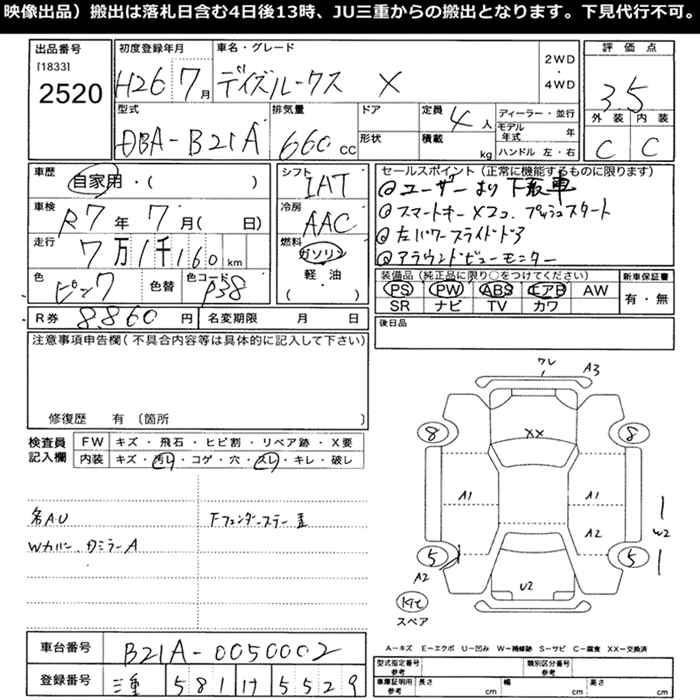 映像出品）搬出は落札日含む4日後13時、JU三重からの搬出となります。下見代行不可。
出品番号 [1833] 2520
初度登録年月 H26 7月
車名・グレード デイズルークス X
2WD・4WD
評価点 3.5
外装 C 内装 C
型式 DBA-B21A
排気量 660cc
ドア 形状
定員 4人
積載 kg
ディーラー・並行
モデル年式 年
ハンドル 左・右
車歴 自家用・（ ）
車検 R7年 7月（ 日）
走行 7万1千160km
色 ピンク 色替 色コード P38
シフト IAT
冷房 AAC
燃料 ガソリン 軽・油 （ ）
セールスポイント（正常に機能するものに限ります）
@ユーザーより下取車
@スマートキー×2コ. プッシュスタート
@左パワースライドドア
@アラウンドビューモニター
装備品（純正品に限り○をつけてください）
PS PW ABS エアB AW
SR ナビ TV カワ
新車保証書 有・無
R券 8.860円
名変期限 月 日
後日品
注意事項申告欄（不具合内容等は具体的に記入して下さい）
修復歴 有〔箇所 〕
検査員記入欄
FW キズ・飛石・ヒビ割・リペア跡・X要
内装 キズ・汚レ・コゲ・穴・スレ・キレ・破レ
各AU
Wカバー. 
ミラーA
ワレ A3
8 XX 8
A1 A1
A2 W2
5 5
A2 U2
スペア
A－キズ E－エクボ U－凹み W－補修跡 S－サビ C－腐食 XX－交換済
車台番号 B21A-0050002
登録番号 三重 581 け 5529
型式指定番号 参考
類別区分番号 参考
車庫証明用 参考 長さ cm 幅 cm 高さ cm